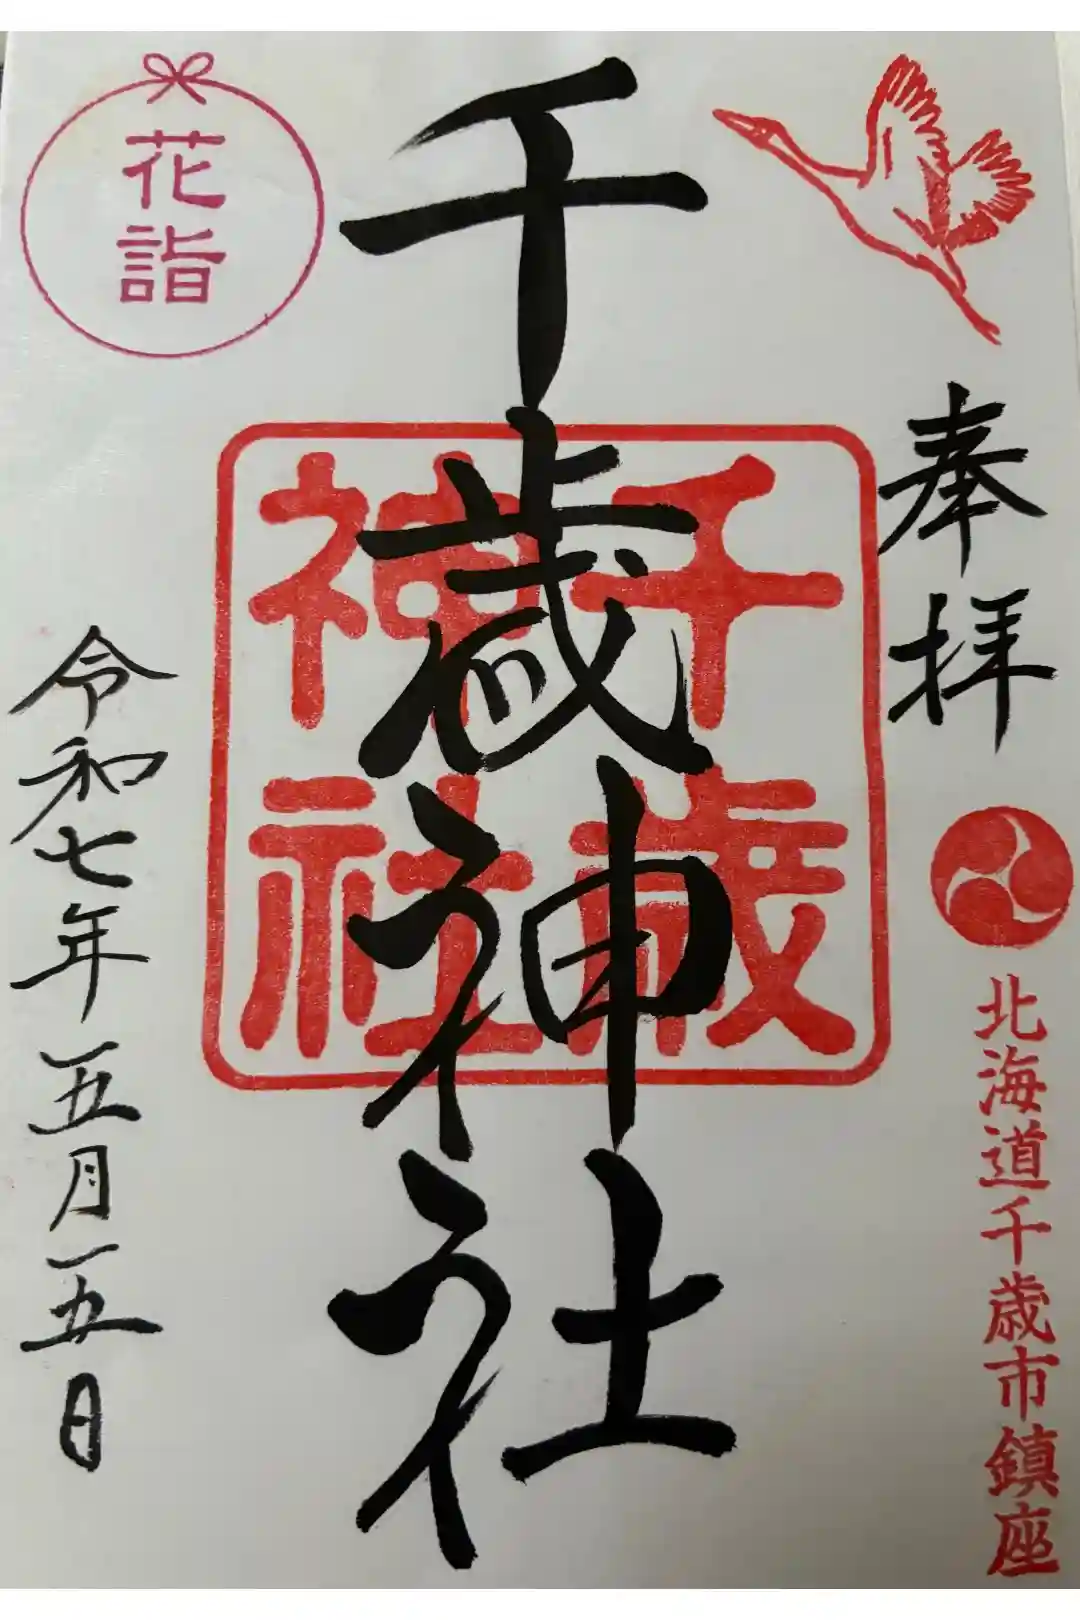 奉拝
北海道千歳市鎮座
千歳神社
千歳
神社
花詣
令和七年五月五日